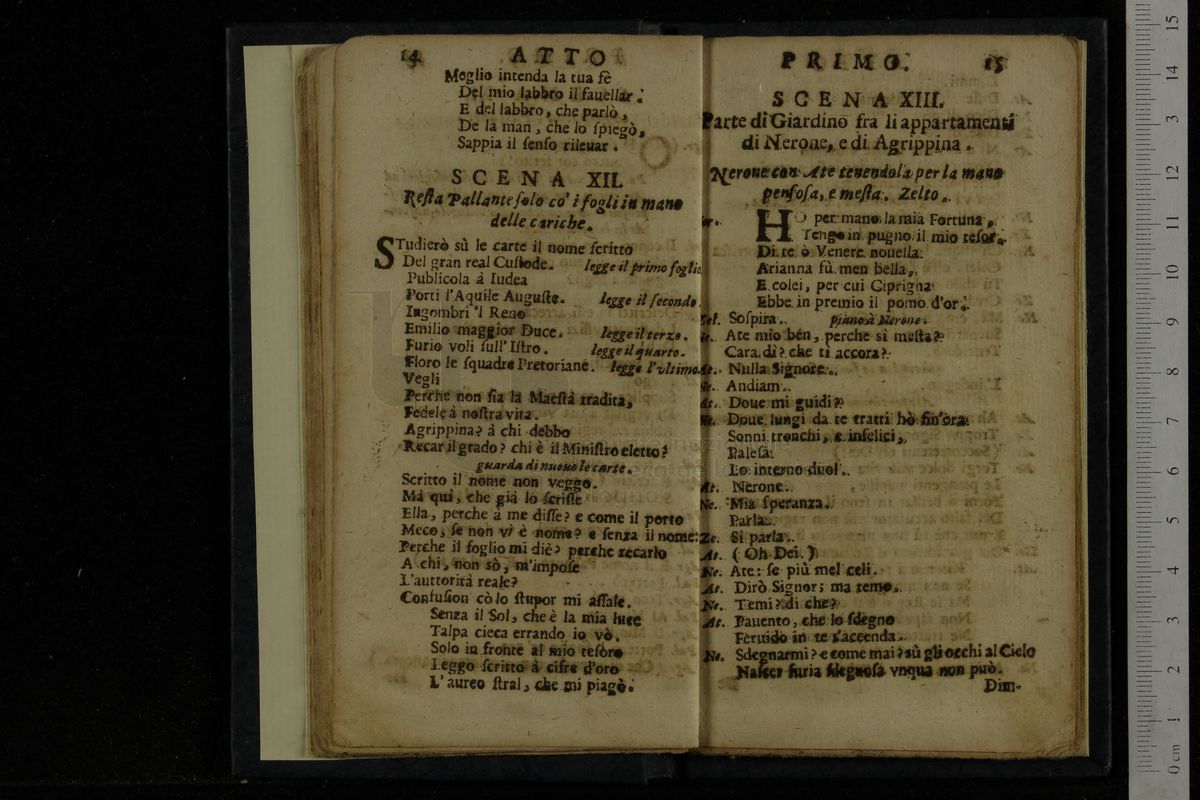 14 ATTO
Meglio intenda la tua fè
Del mio labbro il fauellar.
E del labbro, che parlò,
De la man, che lo ſpiegò,
Sappia il ſenſo rileuar.
SCENA XII.
Reſta Pallante ſolo co' i fogli in mano
delle cariche.
STudierò sù le carte il nome ſcritto
Del gran real Cuſtode. legge il primo foglio.
Publicola à Iudea
Porti l'Aquile Auguſte. legge il ſecondo.
Ingombri 'l Reno
Emilio maggior Duce. legge il terzo.
Furio voli ſull'Iſtro. legge il quarto.
Floro le ſquadre Pretoriane. legge l'vltimo.
Vegli
Perche non ſia la Maeſtà tradita,
Fedele à noſtra vita.
Agrippina? à chi debbo
Recar il grado? chi è il Miniſtro eletto?
guarda di nuouo le carte.
Scritto il nome non veggo.
Mà qui, che già lo ſcriſſe
Ella, perche à me diſſe? e come il porto
Meco, ſe non vi è nome? e ſenza il nome
Perche il foglio mi diè? perche recarlo
A chi, non sò, m'impoſe
L'auttorità reale?
Confuſion cò lo ſtupor mi aſſale.
Senza il Sol, che è la mia luce
Talpa cieca errando io vò.
Solo in fronte al mio teſoro
Leggo ſcritto à cifre d'oro
L'aureo ſtral, che mi piagò.
PRIMO. 15
SCENA XIII.
Parte di Giardino fra li appartamenti
di Nerone, e di Agrippina.
Nerone con Ate tenendola per la mano
penſoſa, e meſta. Zelto.
HO per mano la mia Fortuna,
Tengo in pugno il mio teſor.
Di te ò Venere nouella
Arianna fù men bella,
E colei, per cui Ciprigna
Ebbe in premio il pomo d'or.
Zel. Soſpira. piano à Nerone.
Ne. Ate mio ben, perche sì meſta?
Cara dì? che ti accora?
At. Nulla Signore.
Ne. Andiam.
At. Doue mi guidi?
Ne. Doue lungi da te tratti hò fin'ora
Sonni tronchi, e infelici,
Paleſa
Lo interno duol.
At. Nerone.
Ne. Mia ſperanza.
Parla.
Ze. Sì parla.
At. (Oh Dei.)
Ne. Ate: ſe più mel celi.
At. Dirò Signor; ma temo.
Ne. Temi? di che?
At. Pauento, che lo ſdegno
Feruido in te s'accenda.
Ne. Sdegnarmi? e come mai? sù gli occhi al Cielo
Naſcer furia ſdegnoſa vnqua non può.
Dim-
0 cm 1 2 3 4 5 6 7 8 9 10 11 12 13 14 15